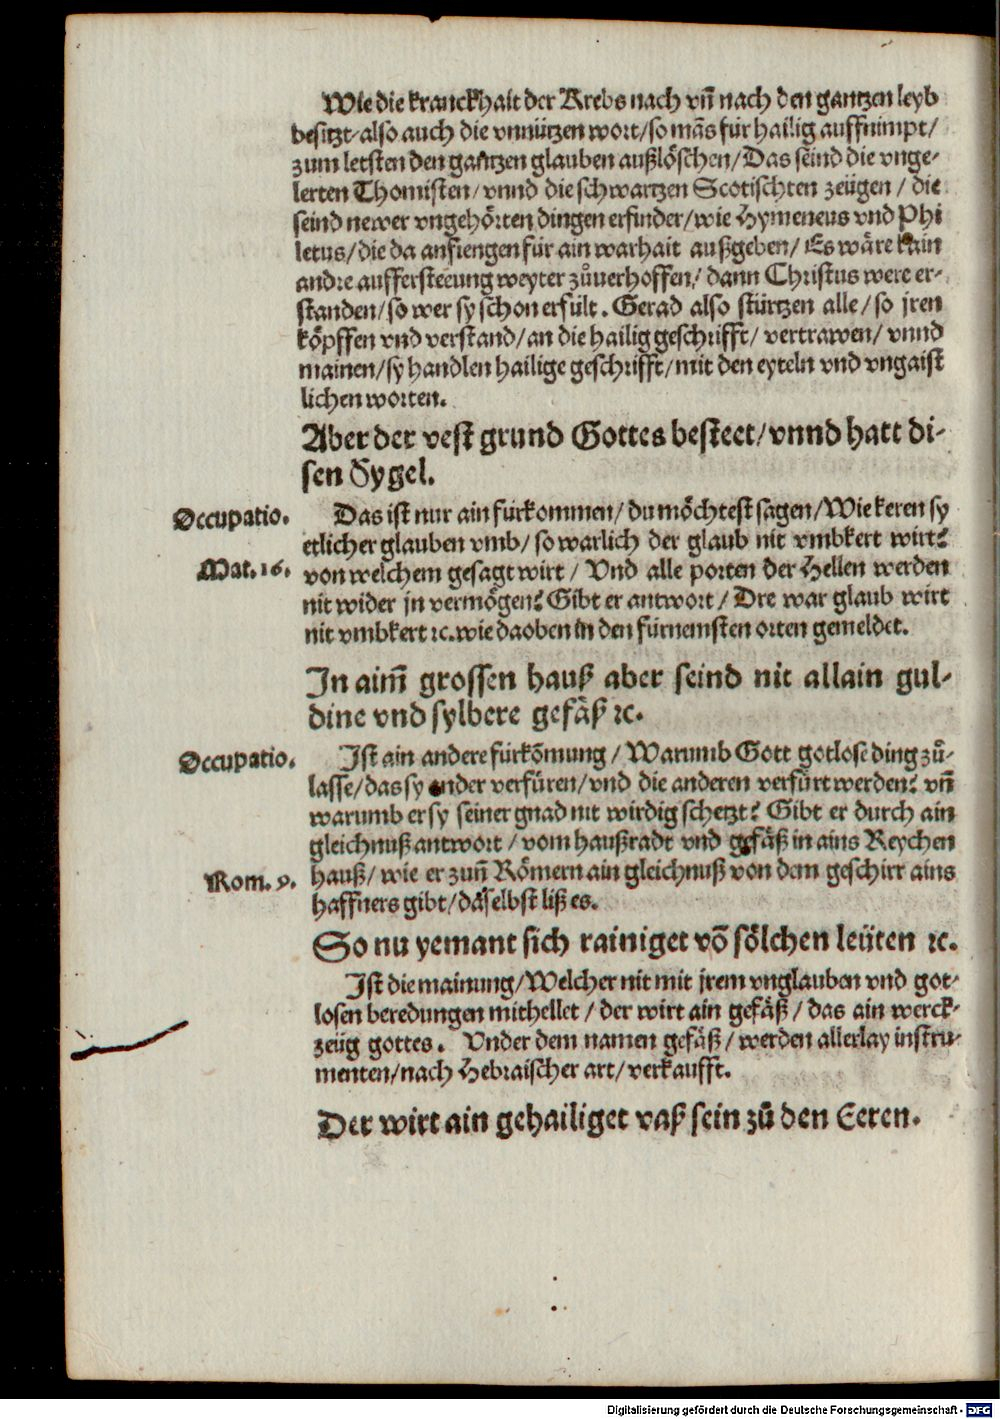 Wie die kranckhait der Krebs nach vñ nach den gantzen leyb
besitzt/also auch die vnnützen wort/so mãs für hailig auffnimpt/
zum letsten den gantzen glauben außlöschen/Das seind die vnge-
lerten Thomisten/vnnd die schwartzen Scotischten zeügen/die
seind newer vngehörten dingen erfinder/wie Hymeneus vnd Phi
letus/die da anfiengen für ain warhait außgeben/Es wäre kain
andre auffersteeung weyter zůuerhoffen/dann Christus were er-
standen/so wer sy schon erfült. Gerad also stürtzen alle/so jren
köpffen vnd verstand/an die hailig geschrifft/vertrawen/vnnd
mainen/sy handlen hailige geschrifft/mit den eyteln vnd vngaist
lichen worten.
Aber der vest grund Gottes besteet/vnnd hatt di-
sen Sygel.
Occupatio.
Das ist nur ain fürkommen/du möchtest sagen/Wie keren sy
etlicher glauben vmb/so warlich der glaub nit vmbkert wirt?
Mat.16.
von welchem gesagt wirt/Vnd alle porten der Hellen werden
nit wider jn vermögen? Gibt er antwort/Dre war glaub wirt
nit vmbkert ⁊c. wie daoben in den fürnemsten orten gemeldet.
In aim̃ grossen hauß aber seind nit allain gul-
dine vnd sylbere gefäß ⁊c.
Occupatio.
Ist ain andere fürkõmung/Warumb Gott gotlose ding zů-
lasse/das sy ander verfüren/vnd die anderen verfürt werden? vñ
warumb er sy seiner gnad nit wirdig schetzt? Gibt er durch ain
gleichnuß antwort/vom haußradt vnd gefäß in ains Reychen
Rom.9.
hauß/wie er zun̄ Römern ain gleichnuß von dem geschirr ains
haffners gibt/daselbst liß es.
So nu yemant sich rainiget võ sölchen leüten ⁊c.
Ist die mainung/Welcher nit mit jrem vnglauben vnd got-
losen beredungen mithellet/der wirt ain gefäß/das ain werck-
zeüg gottes. Vnder dem namen gefäß/werden allerlay instru-
menten/nach Hebraischer art/verkaufft.
Der wirt ain gehailiget vaß sein zů den Eeren.
Digitalisierung gefördert durch die Deutsche Forschungsgemeinschaft - DFG